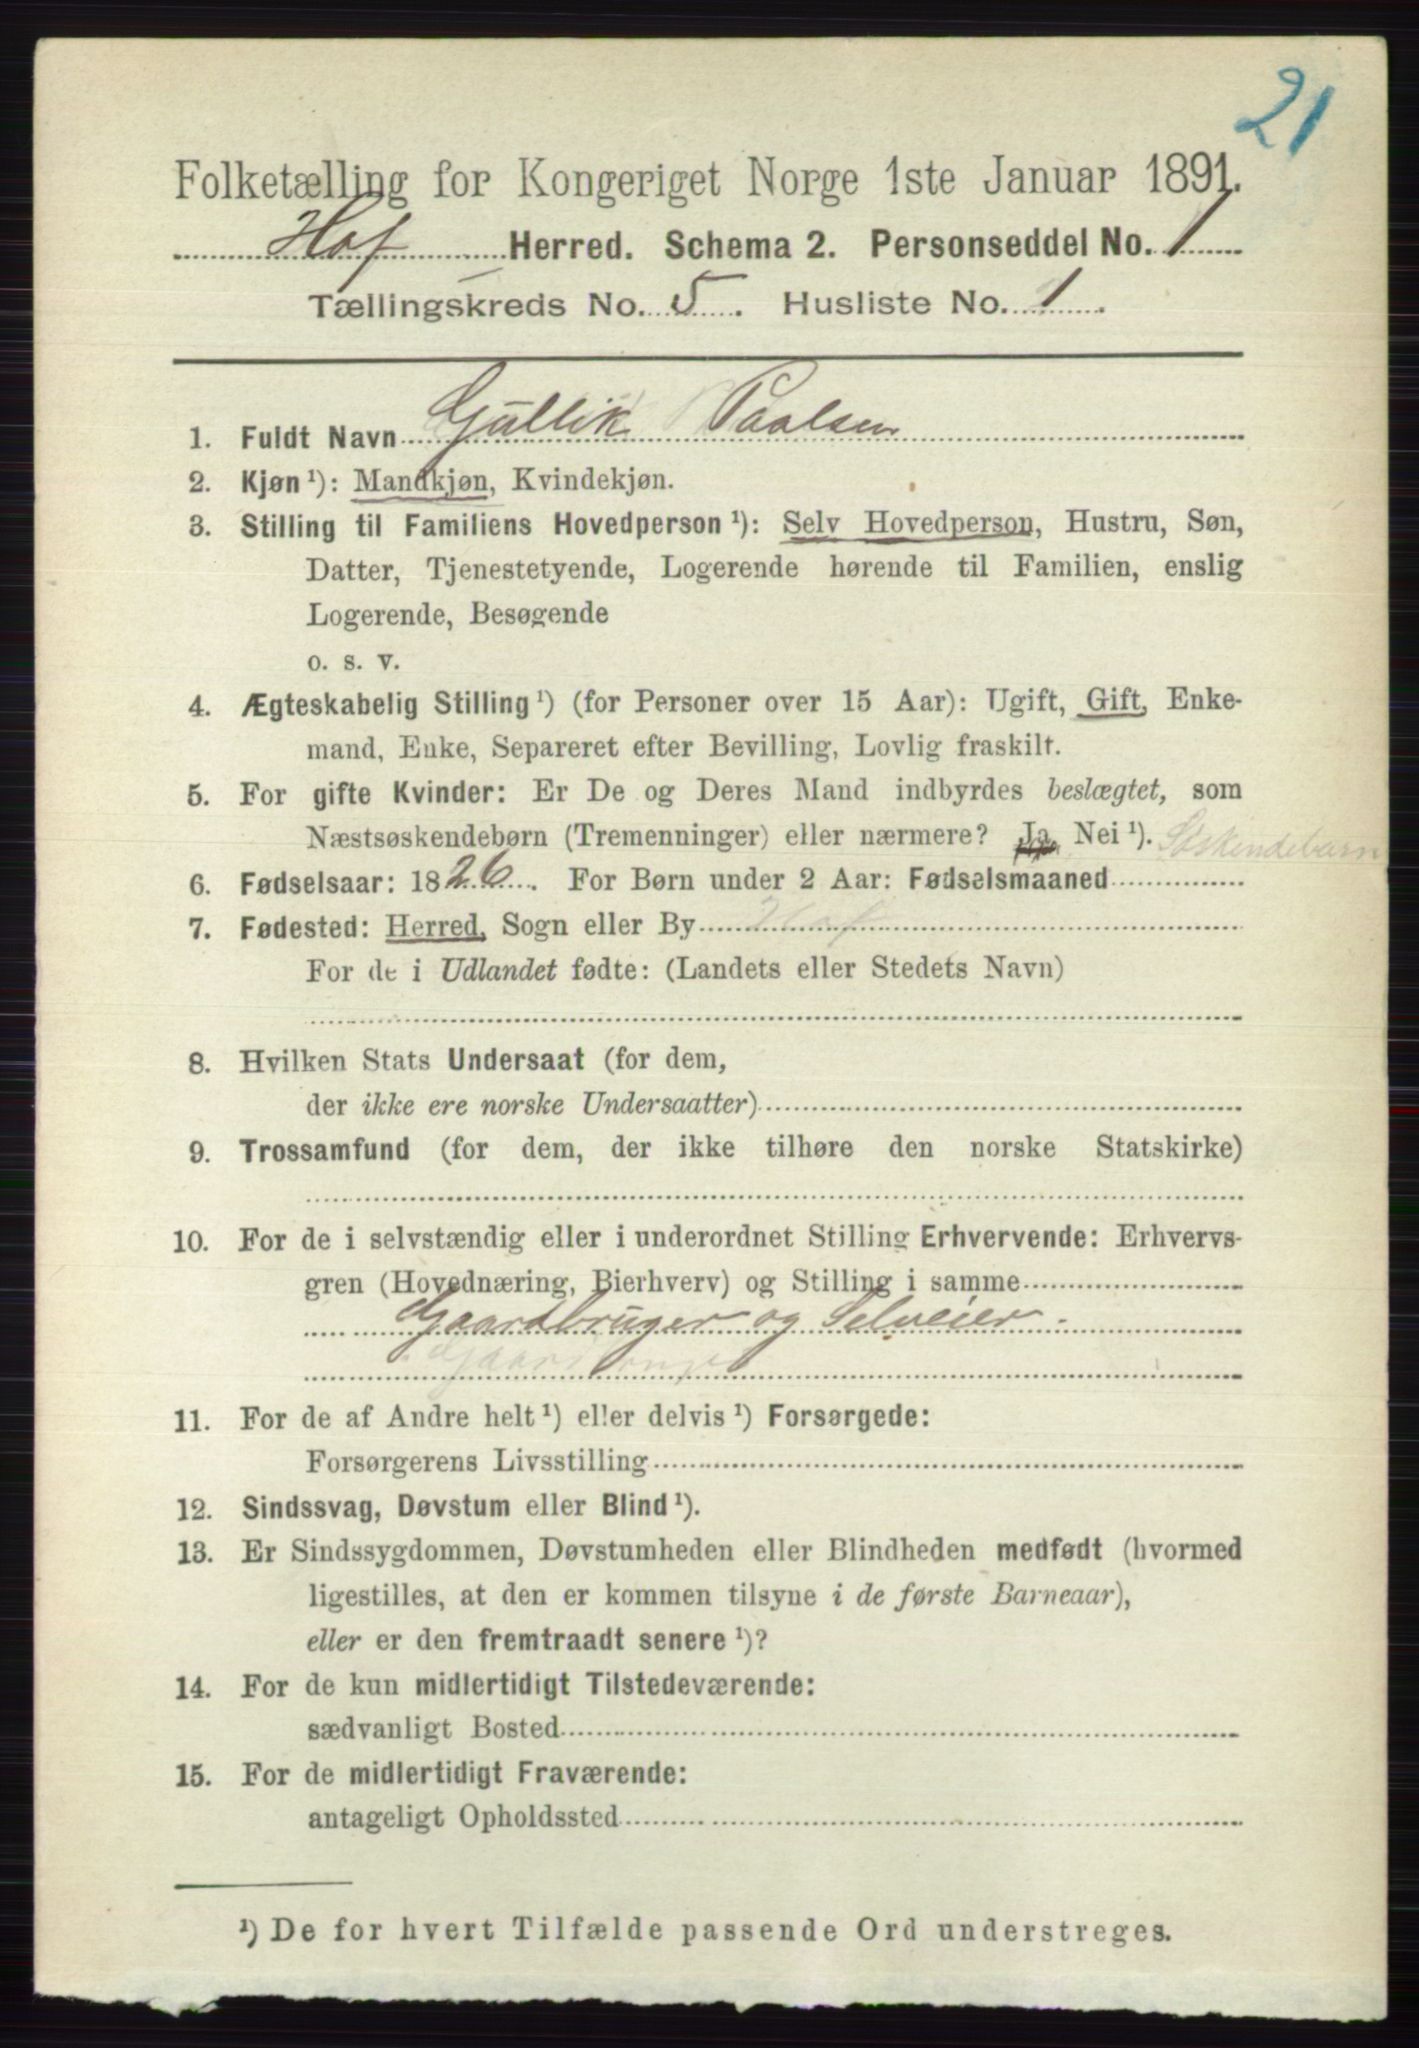 21
Folketælling for Kongeriget Norge 1ste Januar 1891.
Hof Herred. Schema 2. Personseddel No. 1
Tællingskreds No. 5. Husliste No. 1.
1. Fuldt Navn Gullik Paalsen
2. Kjøn ¹): Mandkjøn, Kvindekjøn.
3. Stilling til Familiens Hovedperson ¹): Selv Hovedperson, Hustru, Søn,
Datter, Tjenestetyende, Logerende hørende til Familien, enslig
Logerende, Besøgende
o. s. v.
4. Ægteskabelig Stilling ¹) (for Personer over 15 Aar): Ugift, Gift, Enke-
mand, Enke, Separeret efter Bevilling, Lovlig fraskilt.
5. For gifte Kvinder: Er De og Deres Mand indbyrdes beslægtet, som
Næstsøskendebørn (Tremenninger) eller nærmere? Ja, Nei ¹). Søskendebarn
6. Fødselsaar: 1826. For Børn under 2 Aar: Fødselsmaaned
7. Fødested: Herred, Sogn eller By Hof
For de i Udlandet fødte: (Landets eller Stedets Navn)
8. Hvilken Stats Undersaat (for dem,
der ikke ere norske Undersaatter)
9. Trossamfund (for dem, der ikke tilhøre den norske Statskirke)
10. For de i selvstændig eller i underordnet Stilling Erhvervende: Erhvervs-
gren (Hovednæring, Bierhverv) og Stilling i samme
Gaardbruger og Selveier.
Gaardbruger
11. For de af Andre helt ¹) eller delvis ¹) Forsørgede:
Forsørgerens Livsstilling
12. Sindssvag, Døvstum eller Blind ¹).
13. Er Sindssygdommen, Døvstumheden eller Blindheden medfødt (hvormed
ligestilles, at den er kommen tilsyne i de første Barneaar),
eller er den fremtraadt senere ¹)?
14. For de kun midlertidigt Tilstedeværende:
sædvanligt Bosted
15. For de midlertidigt Fraværende:
antageligt Opholdssted
¹) De for hvert Tilfælde passende Ord understreges.